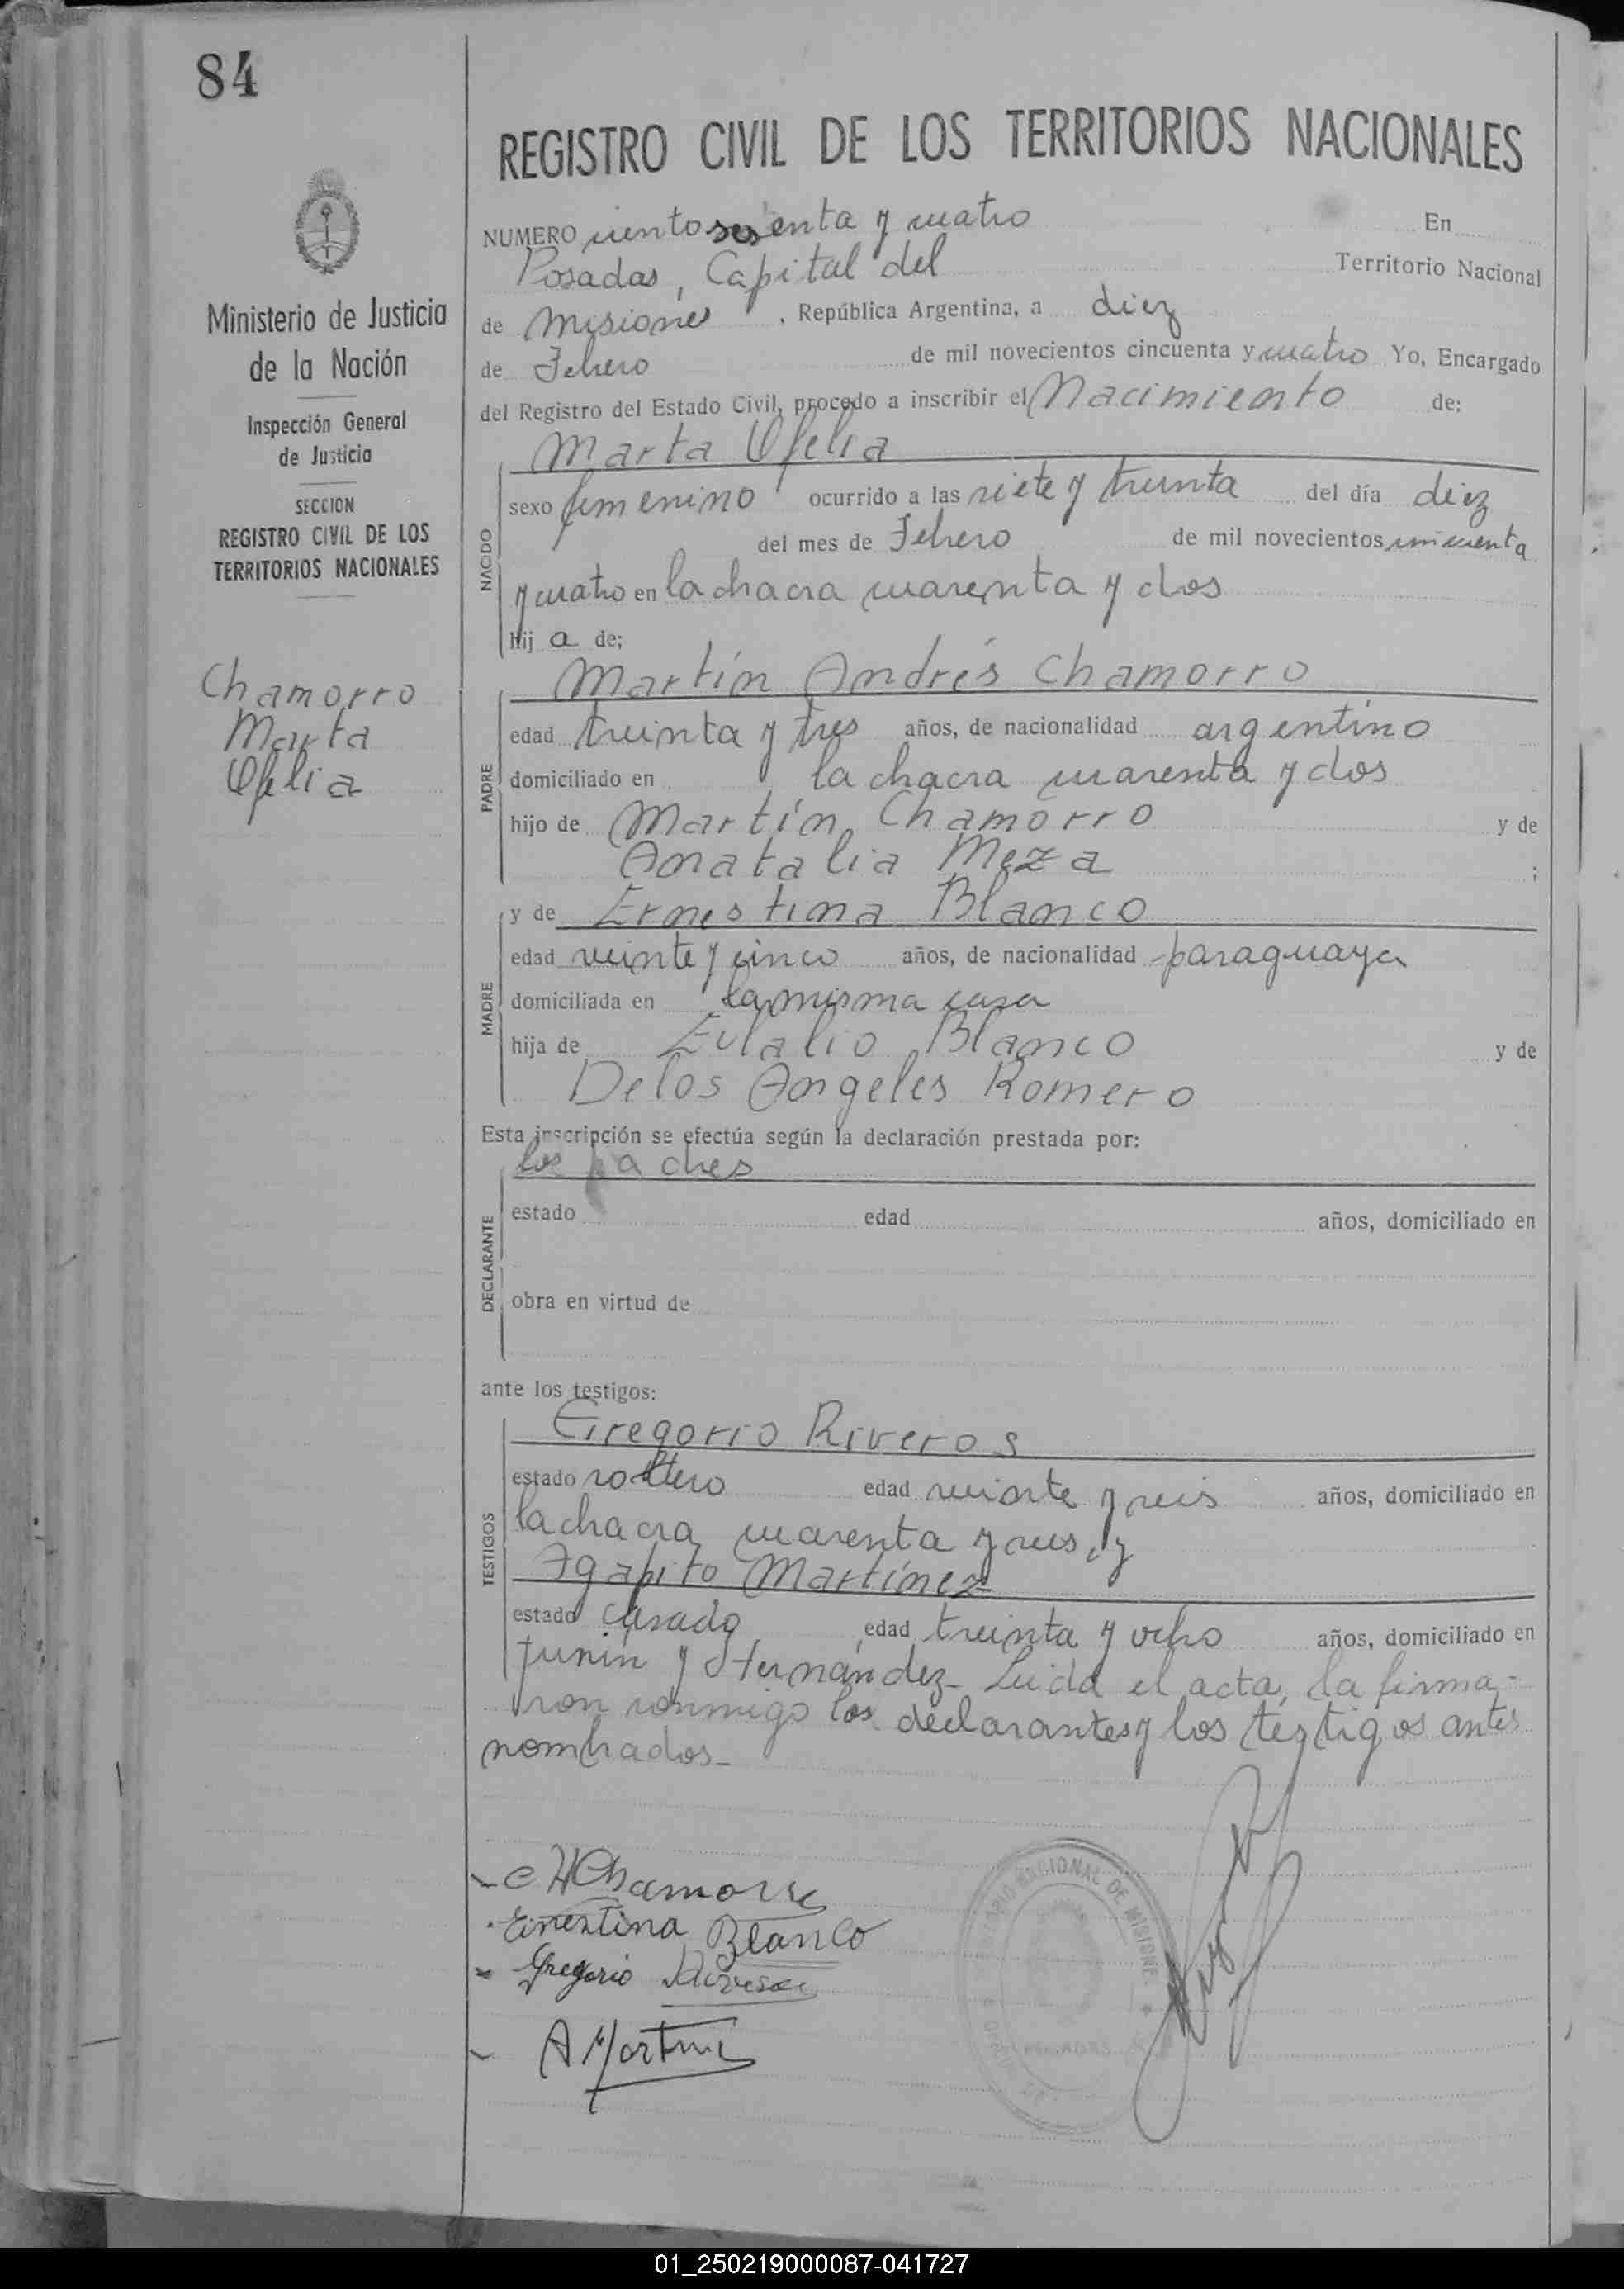 84
REGISTRO CIVIL DE LOS TERRITORIOS NACIONALES
NUMERO ciento sesenta y cuatro En
Posadas, Capital del Territorio Nacional
de Misiones, República Argentina, a diez
de Febrero de mil novecientos cincuenta y cuatro Yo, Encargado
del Registro del Estado Civil, procedo a inscribir el Nacimiento de:
Marta Ofelia
sexo femenino ocurrido a las siete y treinta del día diez
del mes de Febrero de mil novecientos cincuenta
y cuatro en la chacra cuarenta y dos
hij a de;
NACIDO
Martín Andrés Chamorro
edad treinta y tres años, de nacionalidad argentino
domiciliado en la chacra cuarenta y dos
hijo de Martín Chamorro y de
Anatalia Meza ;
PADRE
y de Ernestina Blanco
edad veinte y cinco años, de nacionalidad paraguaya
domiciliada en la misma casa
hija de Eulalio Blanco y de
De los Angeles Romero
MADRE
Esta inscripción se efectúa según la declaración prestada por:
los padres
estado edad años, domiciliado en
obra en virtud de
DECLARANTE
ante los testigos:
Gregorio Riveros
estado soltero edad veinte y seis años, domiciliado en
la chacra cuarenta y seis, y
Agapito Martínez
estado casado edad treinta y ocho años, domiciliado en
TESTIGOS
Junín y Hernández- Leida el acta, la firma-
ron conmigo los declarantes y los testigos antes
nombrados-
Chamorro
Ernestina Blanco
Gregorio Riveros
A Martinez
Ministerio de Justicia
de la Nación
Inspección General
de Justicia
SECCION
REGISTRO CIVIL DE LOS
TERRITORIOS NACIONALES
Chamorro
Marta
Ofelia
NACIONAL DE MISIONES
01_250219000087-041727